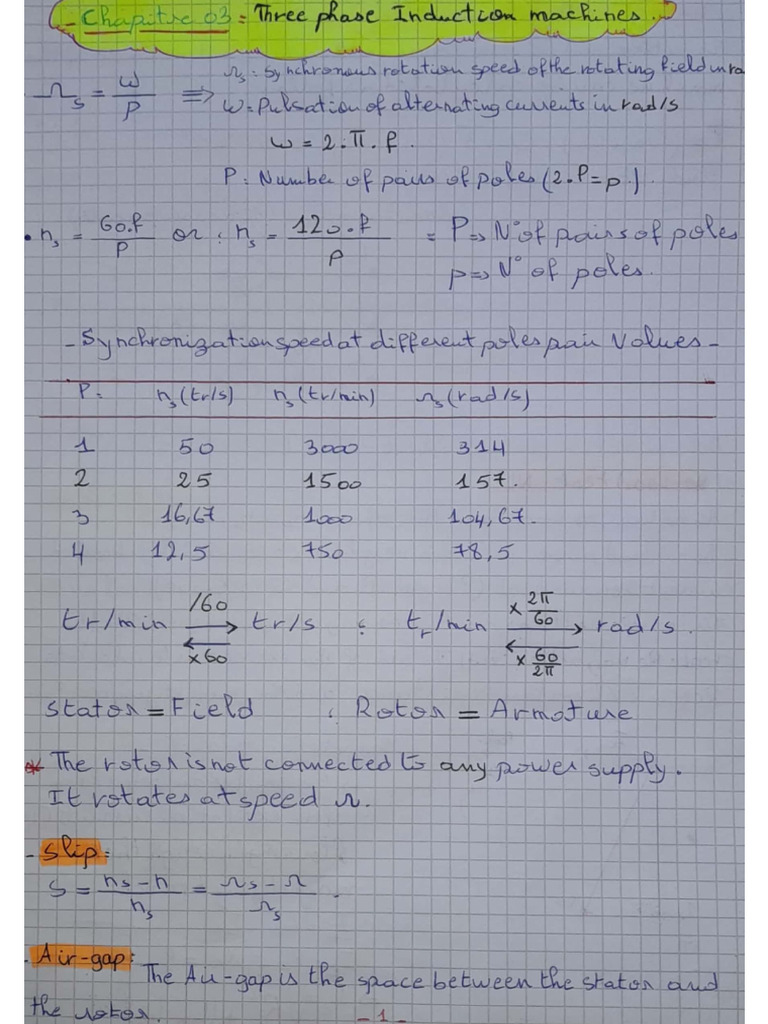 - Chapitre 03 : Three phase Induction machines.
Ωs = ω/P ⟹ Ωs : Synchronous rotation speed of the rotating field in ra
ω = Pulsation of alternating currents in rad/s
ω = 2.π.f.
P : Number of pairs of poles (2.P = p).
• ns = 60.f/P or : ns = 120.f/p = P => N° of pairs of poles
p => N° of poles.
- Synchronization speed at different poles pair Values -
P: ns (tr/s) ns (tr/min) Ωs (rad/s)
1 50 3000 314
2 25 1500 157.
3 16,67 1000 104,67.
4 12,5 750 78,5
tr/min /60 → ← ×60 tr/s ; tr/min × 2π/60 → ← × 60/2π rad/s.
Stator = Field ; Rotor = Armature
* The rotor is not connected to any power supply.
It rotates at speed Ω.
- Slip:
S = ns - n / ns = Ωs - Ω / Ωs.
. Air-gap: The Air-gap is the space between the stator and
the rotor.
- 1 -